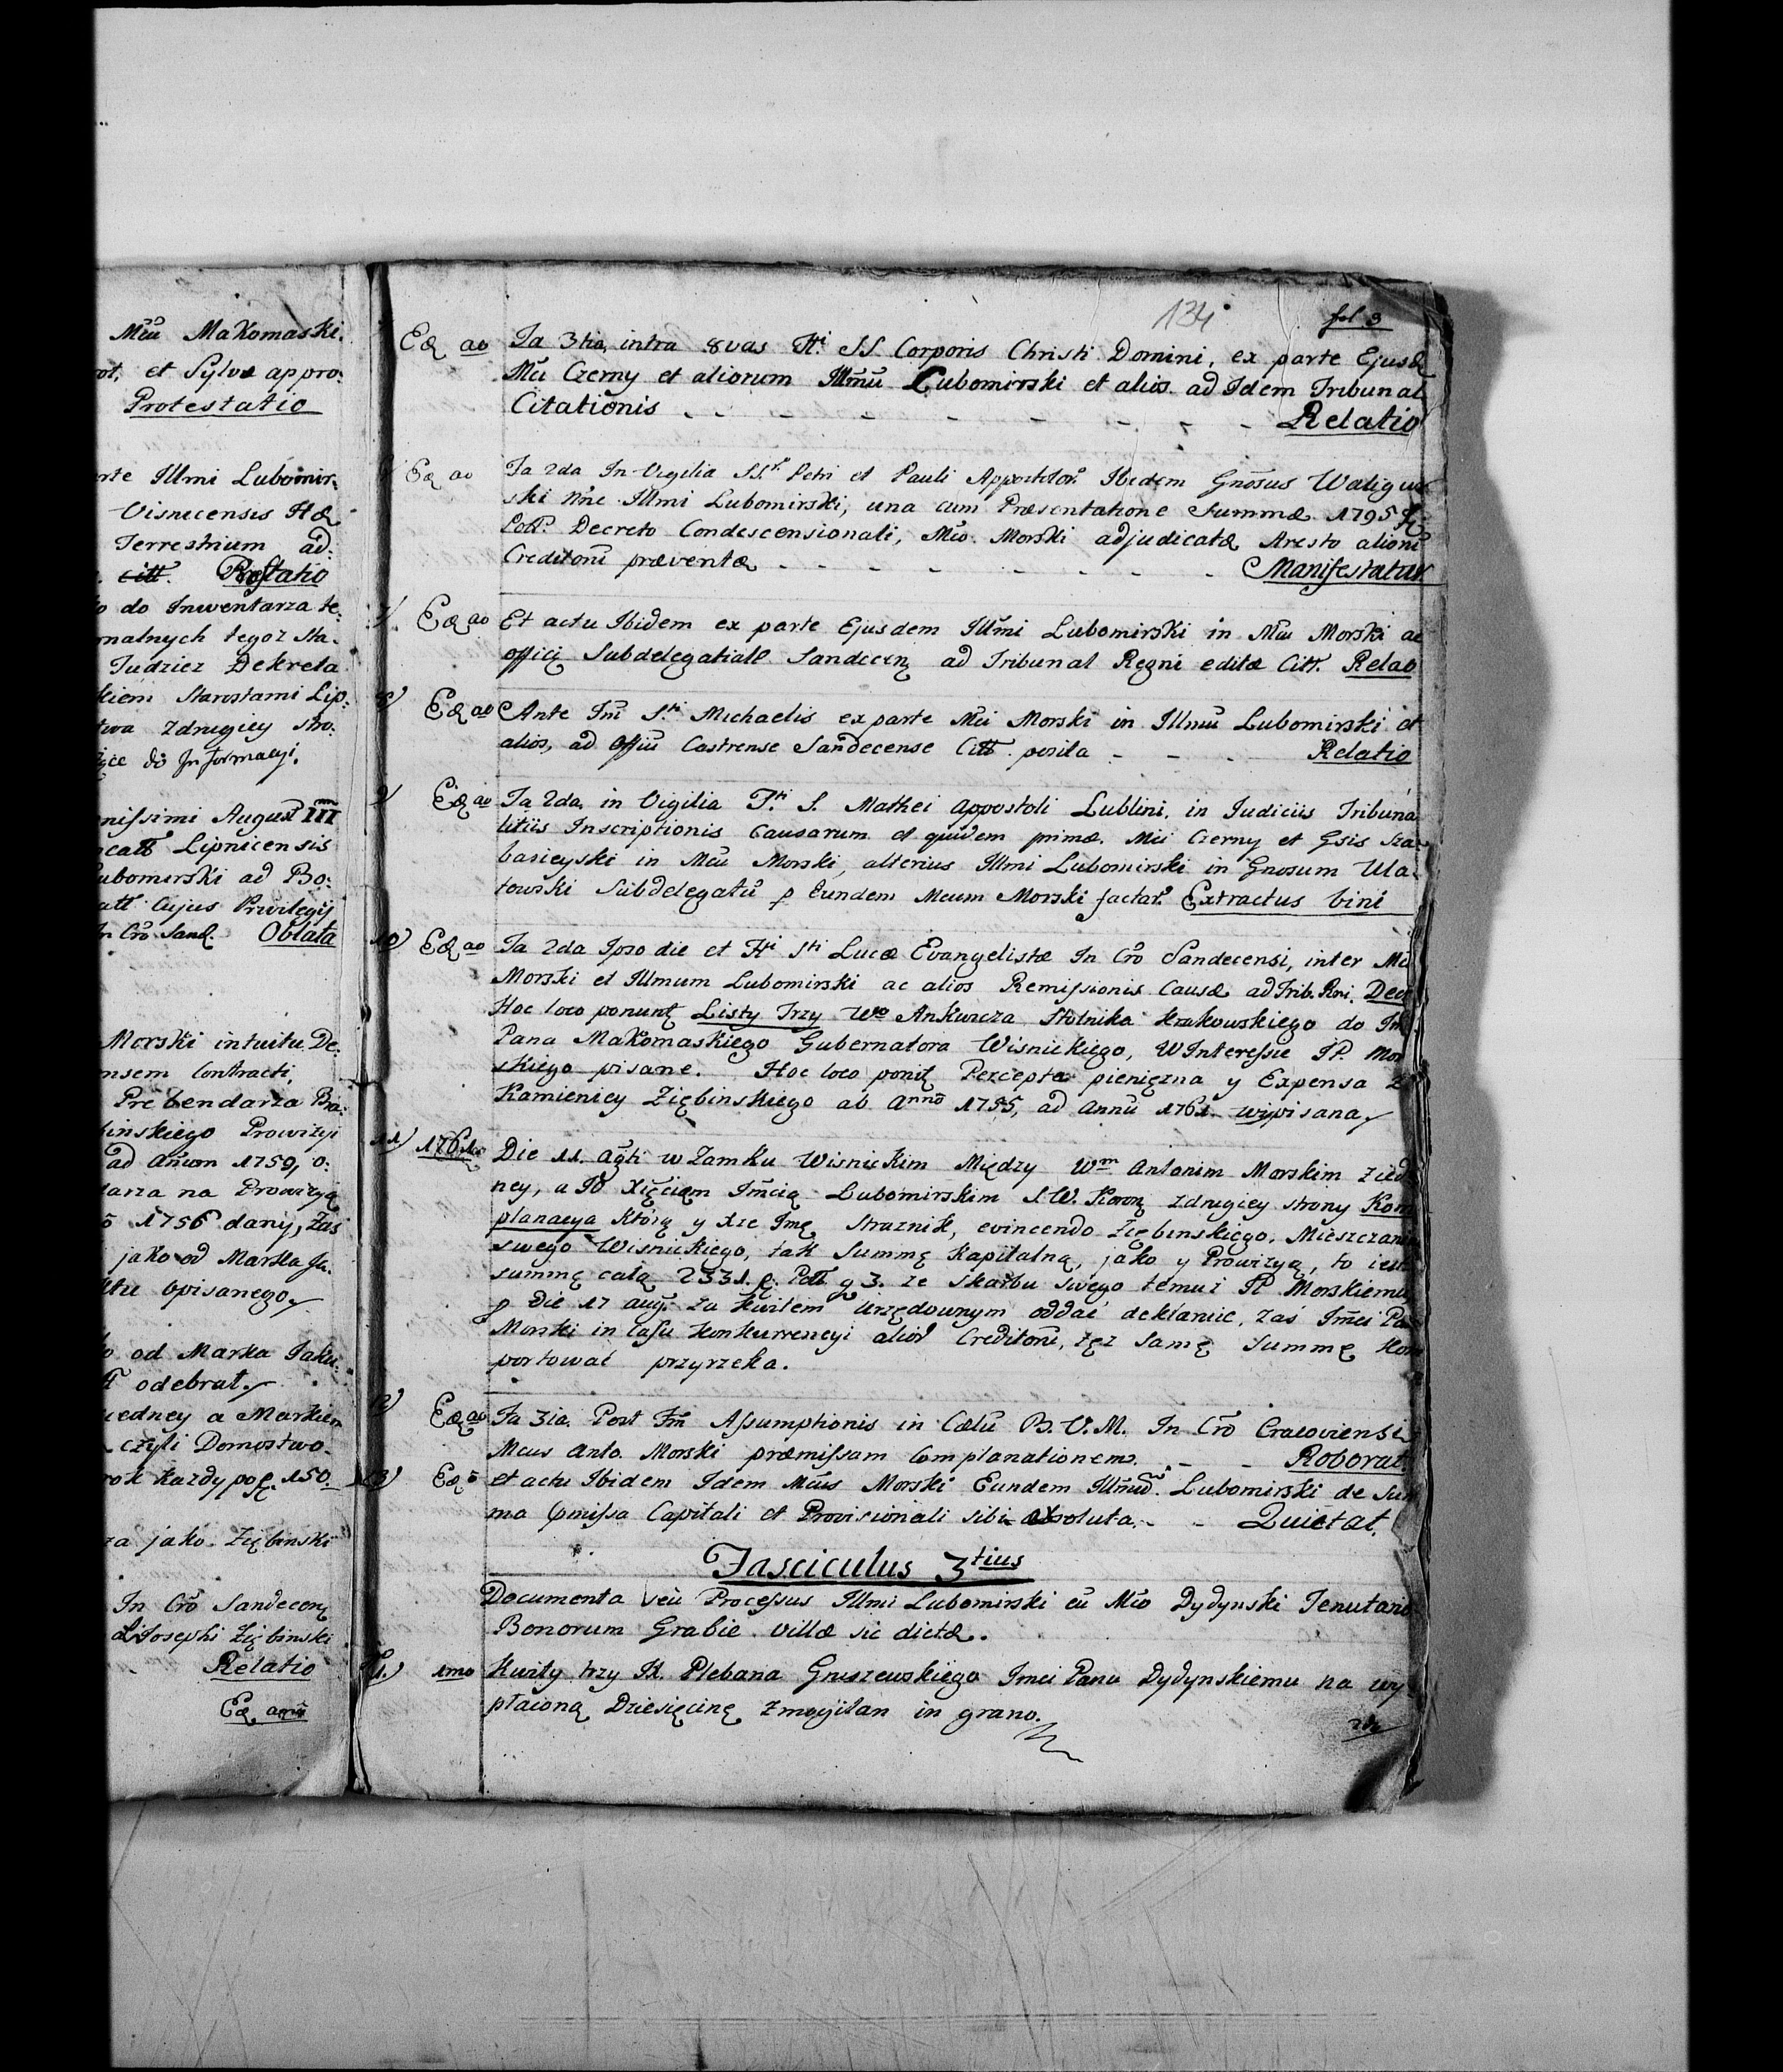 Mcũ Makomaski.
et Sylvæ appro:
Protestatio
Illmi Lubomir:
Visnicensis Hæ
Terrestrium ad:
citt. Rẽstatio
do Inwentarza te:
tegoż Sta:
Tudziez Dekreta
Starostami Lip:
zdrugiey stro:
do Jnformacyi.
August III
Lipnicensis
ad Bo:
Cujus Privilegij
Crõ Sand. Oblata
Morski intuitu De:
Contracti,
Prebendarza Bo:
Prowizyi
ad Annum 1759, o:
na Prowizyą
1756 dany, Zaś
jako od Marka Ja:
opisanego
od Marka Jaku:
odebrał.
a Markiem
czyli Domostwo
rok każdy po 150.
jako Ziębinski
In Crõ Sandecen
Josephi Ziębinski
Relatio
Eæ anno
134
fol 3
Eæ ao Fa 3tia, intra 8vas Fti SS. Corporis Christi Domini, ex parte Ejusd
Mci Czerny et aliorum Illmũ Lubomirski et alios ad Idem Tribunal
Citationis - - - - - - - Relatio
Eæ ao Fa 2da In Vigilia SS. Petri et Pauli Appostolor. Ibidem Gnõsus Waligur
ski nñe Illmi Lubomirski, una cum Præsentatione Summæ 1795
Poll. Decreto Condescensionali, Mco. Morski adjudicatæ Aresto aliorũ
Creditorũ præventæ - - - - - - - Manifestatur
7) Eæ ao Et actu Ibidem ex parte Ejusdem Illmi Lubomirski in Mcũ Morski ac
officij Subdelegatiall Sandecen ad Tribunal Regni editæ Citt. Relao
8) Eæ ao Ante Fm̃ S.ti Michaelis ex parte Mci Morski in Illmũ Lubomirski et
alios, ad Offiũ Castrense Sandecense Citt. posita - - - Relatio
9) Eæ ao Fa 2da, in Vigilia F.ti S. Mathei Appostoli Lublini, in Iudiciis Tribuna
litiis Inscriptionis Causarum et quidem primæ Mci Czerny et Gsis Sza
basieyski in Mcũ Morski, alterius Illmi Lubomirski in Gnosum Ula
towski Subdelegatũ p Eundem Mcum Morski factar. Extractus bini
10) Eæ ao Fa 2da Ipso die et Fti Sti Lucæ Evangelistæ In Crõ Sandecensi, inter Mci
Morski et Illmum Lubomirski ac alios Remissionis Causæ ad Trib. Rni. Decr
Hoc loco ponunt Listy Trzy Wgo Ankwicza Stolnika Krakowskiego do Im
Pana Makomaskiego Gubernatora Wisnickiego, W Interessie JP. Mor
skiego pisane. Hoc loco ponit Percepta pieniężna y Expensa z
Kamienicy Ziębinskiego ab Annõ 1755, ad Annũ 1761. wypisana
11) 1761 Die 11. Agti w Zamku Wisnickim Między Wm Antonim Morskim z ied
ney, a JO Xięciem Jmcią Lubomirskim S.W. Koron zdrugiey strony Kom
planacya którą y Xze Jmę Straznik, evincendo Ziębinskiego, Mieszczanina
swego Wisnickiego, tak Summę Kapitalną, jako y Prowizyą, to iest
summę całą 2331. Poll g 3. ze skarbu swego temuż JP. Morskiemu
p Die 17 aug. za kwitem Urzędownym oddać deklaruie, zaś Jmci Pa
Morski in Casu konkurrencyi aliorũ Creditorũ, tęż samę Summę Kom
portować przyrzeka.
12) Eæ ao Fa 3ia. Post Fm̃ Assumptionis in Cælũ B. V. M. In Crõ Cracoviensi
Mcus Anto. Morski præmissam Complanationem. - - Roborat.
13) Eæ o et actu Ibidem Idem Mcus Morski Eundem Illmũ. Lubomirski de Sum
ma pmissa Capitali et Provisionali sibi absoluta. - - Quietat.
Fasciculus 3tius
Documenta seu Processus Illmi Lubomirski cũ Mco Dydynski Tenutario
Bonorum Grabie villæ sic dictæ.
1.) 1mo Kwity trzy X. Plebana Gruszewskiego Jmci Panu Dydynskiemu na wy
płaconą Dziesięcinę in grano.
2do